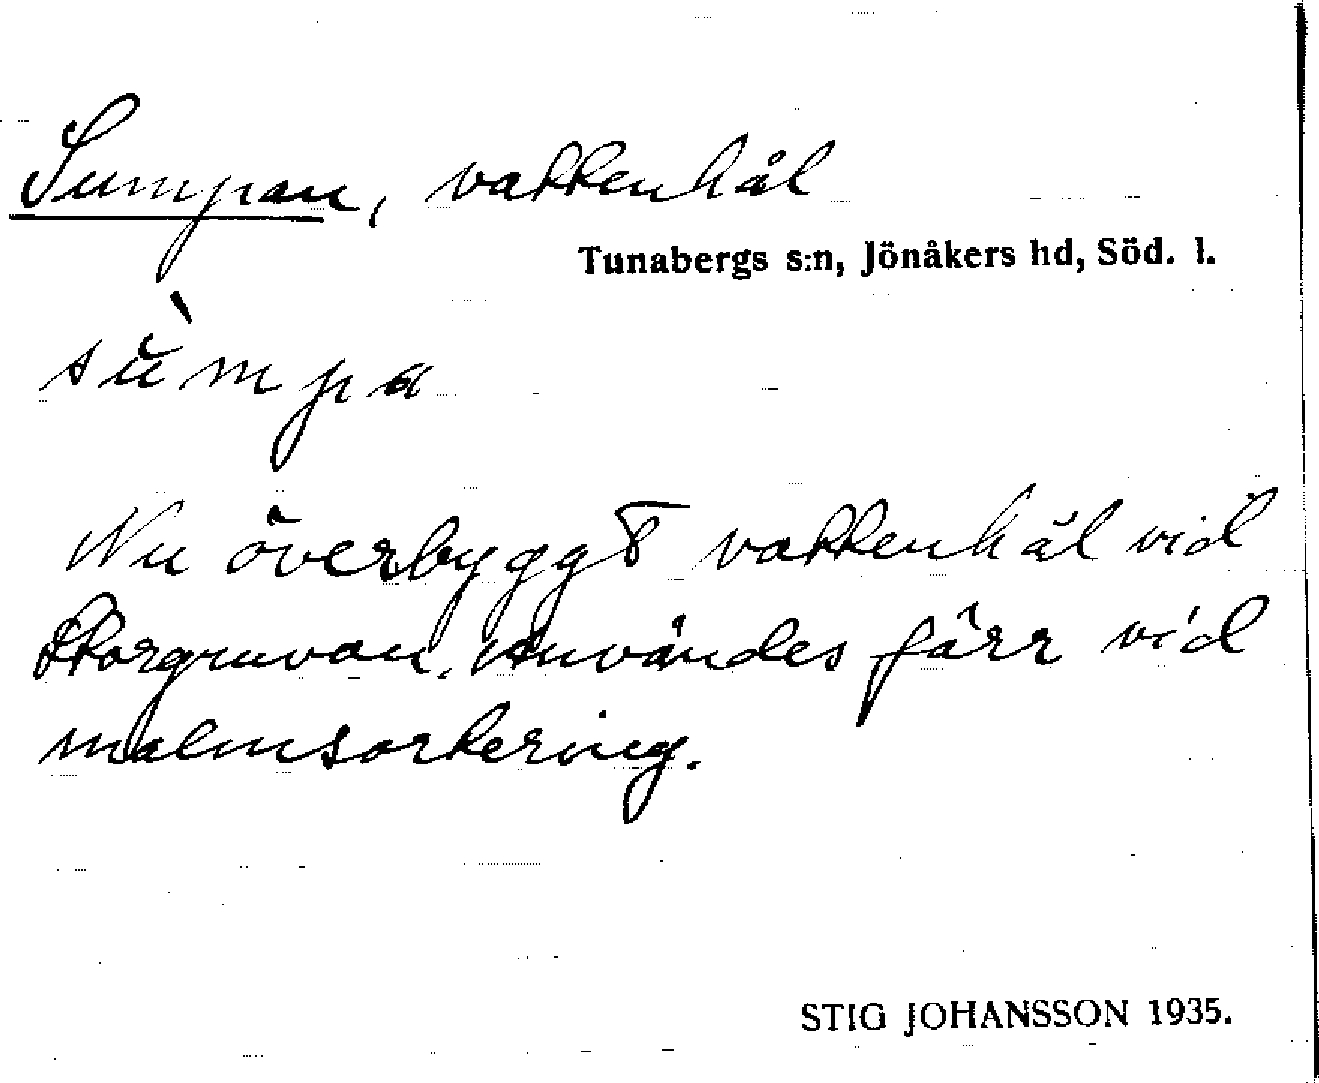 Sumpan, vattenhål
Tunabergs s:n, Jönåkers hd, Söd. l.
sùmpa
Nu överbyggt vattenhål vid
Storgruvan. Användes förr vid
malmsortering.
STIG JOHANSSON 1935.